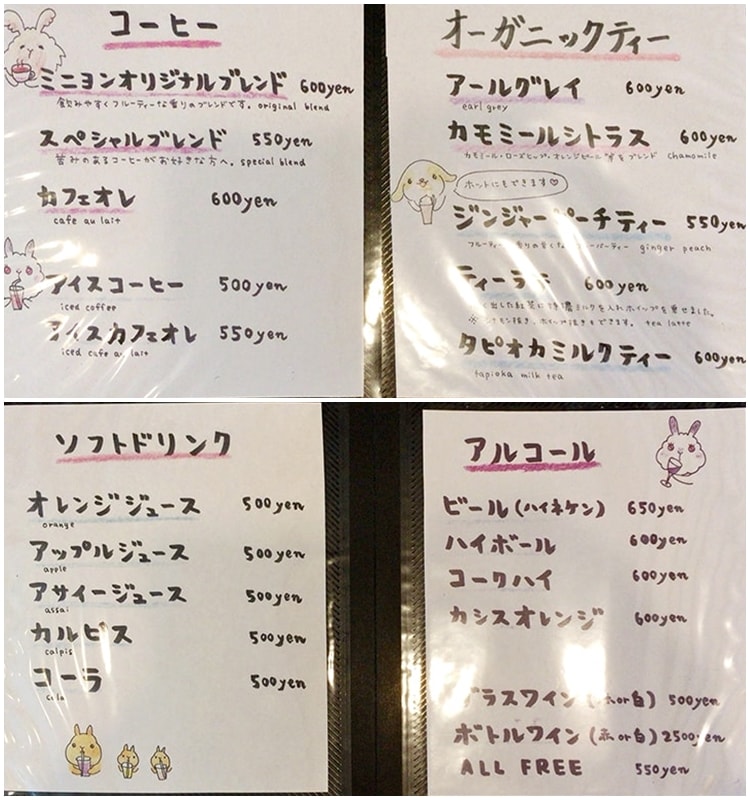 コーヒー
ミニヨンオリジナルブレンド 600yen
飲みやすくフルーティーな香りのブレンドです。original blend
スペシャルブレンド 550yen
苦みのあるコーヒーがお好きな方へ。special blend
カフェオレ 600yen
cafe au lait
アイスコーヒー 500yen
iced coffee
アイスカフェオレ 550yen
iced cafe au lait
オーガニックティー
アールグレイ 600yen
earl grey
カモミールシトラス 600yen
カモミール・ローズヒップ・オレンジピール をブレンド chamomile
ホットにもできます♡
ジンジャーピーチティー 550yen
フルーティー 香りの ティー ginger peach
ティーラテ 600yen
出した紅茶に 濃ミルクを入れホイップを乗せました。
※シナモン抜き、ホイップ抜きもできます。 tea latte
タピオカミルクティー 600yen
tapioka milk tea
ソフトドリンク
オレンジジュース 500yen
orange
アップルジュース 500yen
apple
アサイージュース 500yen
assai
カルピス 500yen
calpis
コーラ 500yen
cola
アルコール
ビール(ハイネケン) 650yen
ハイボール 600yen
コークハイ 600yen
カシスオレンジ 600yen
グラスワイン(赤or白) 500yen
ボトルワイン(赤or白) 2500yen
ALL FREE 550yen